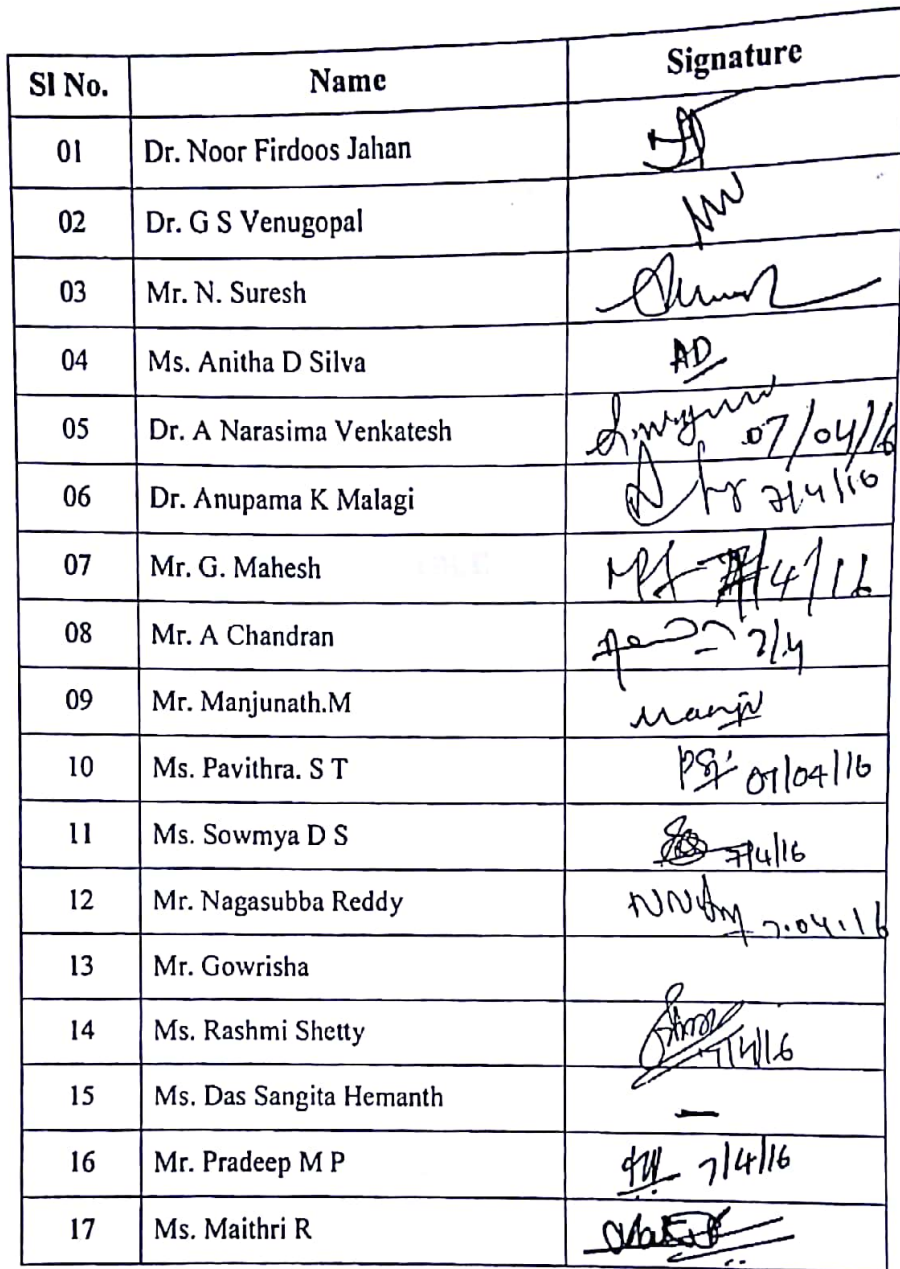 Sl No. Name Signature
01 Dr. Noor Firdoos Jahan
02 Dr. G S Venugopal
03 Mr. N. Suresh
04 Ms. Anitha D Silva AD
05 Dr. A Narasima Venkatesh 07/04/16
06 Dr. Anupama K Malagi 7/4/16
07 Mr. G. Mahesh 7/4/16
08 Mr. A Chandran 7/4
09 Mr. Manjunath.M Manju
10 Ms. Pavithra. S T 07/04/16
11 Ms. Sowmya D S 7/4/16
12 Mr. Nagasubba Reddy 7.04.16
13 Mr. Gowrisha
14 Ms. Rashmi Shetty 7/4/16
15 Ms. Das Sangita Hemanth —
16 Mr. Pradeep M P 7/4/16
17 Ms. Maithri R